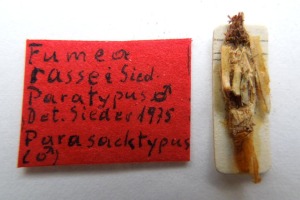 Fumea
rassei Sied.
Paratypus ♂
Det. Sieder 1975
Parasacktypus
(♂)